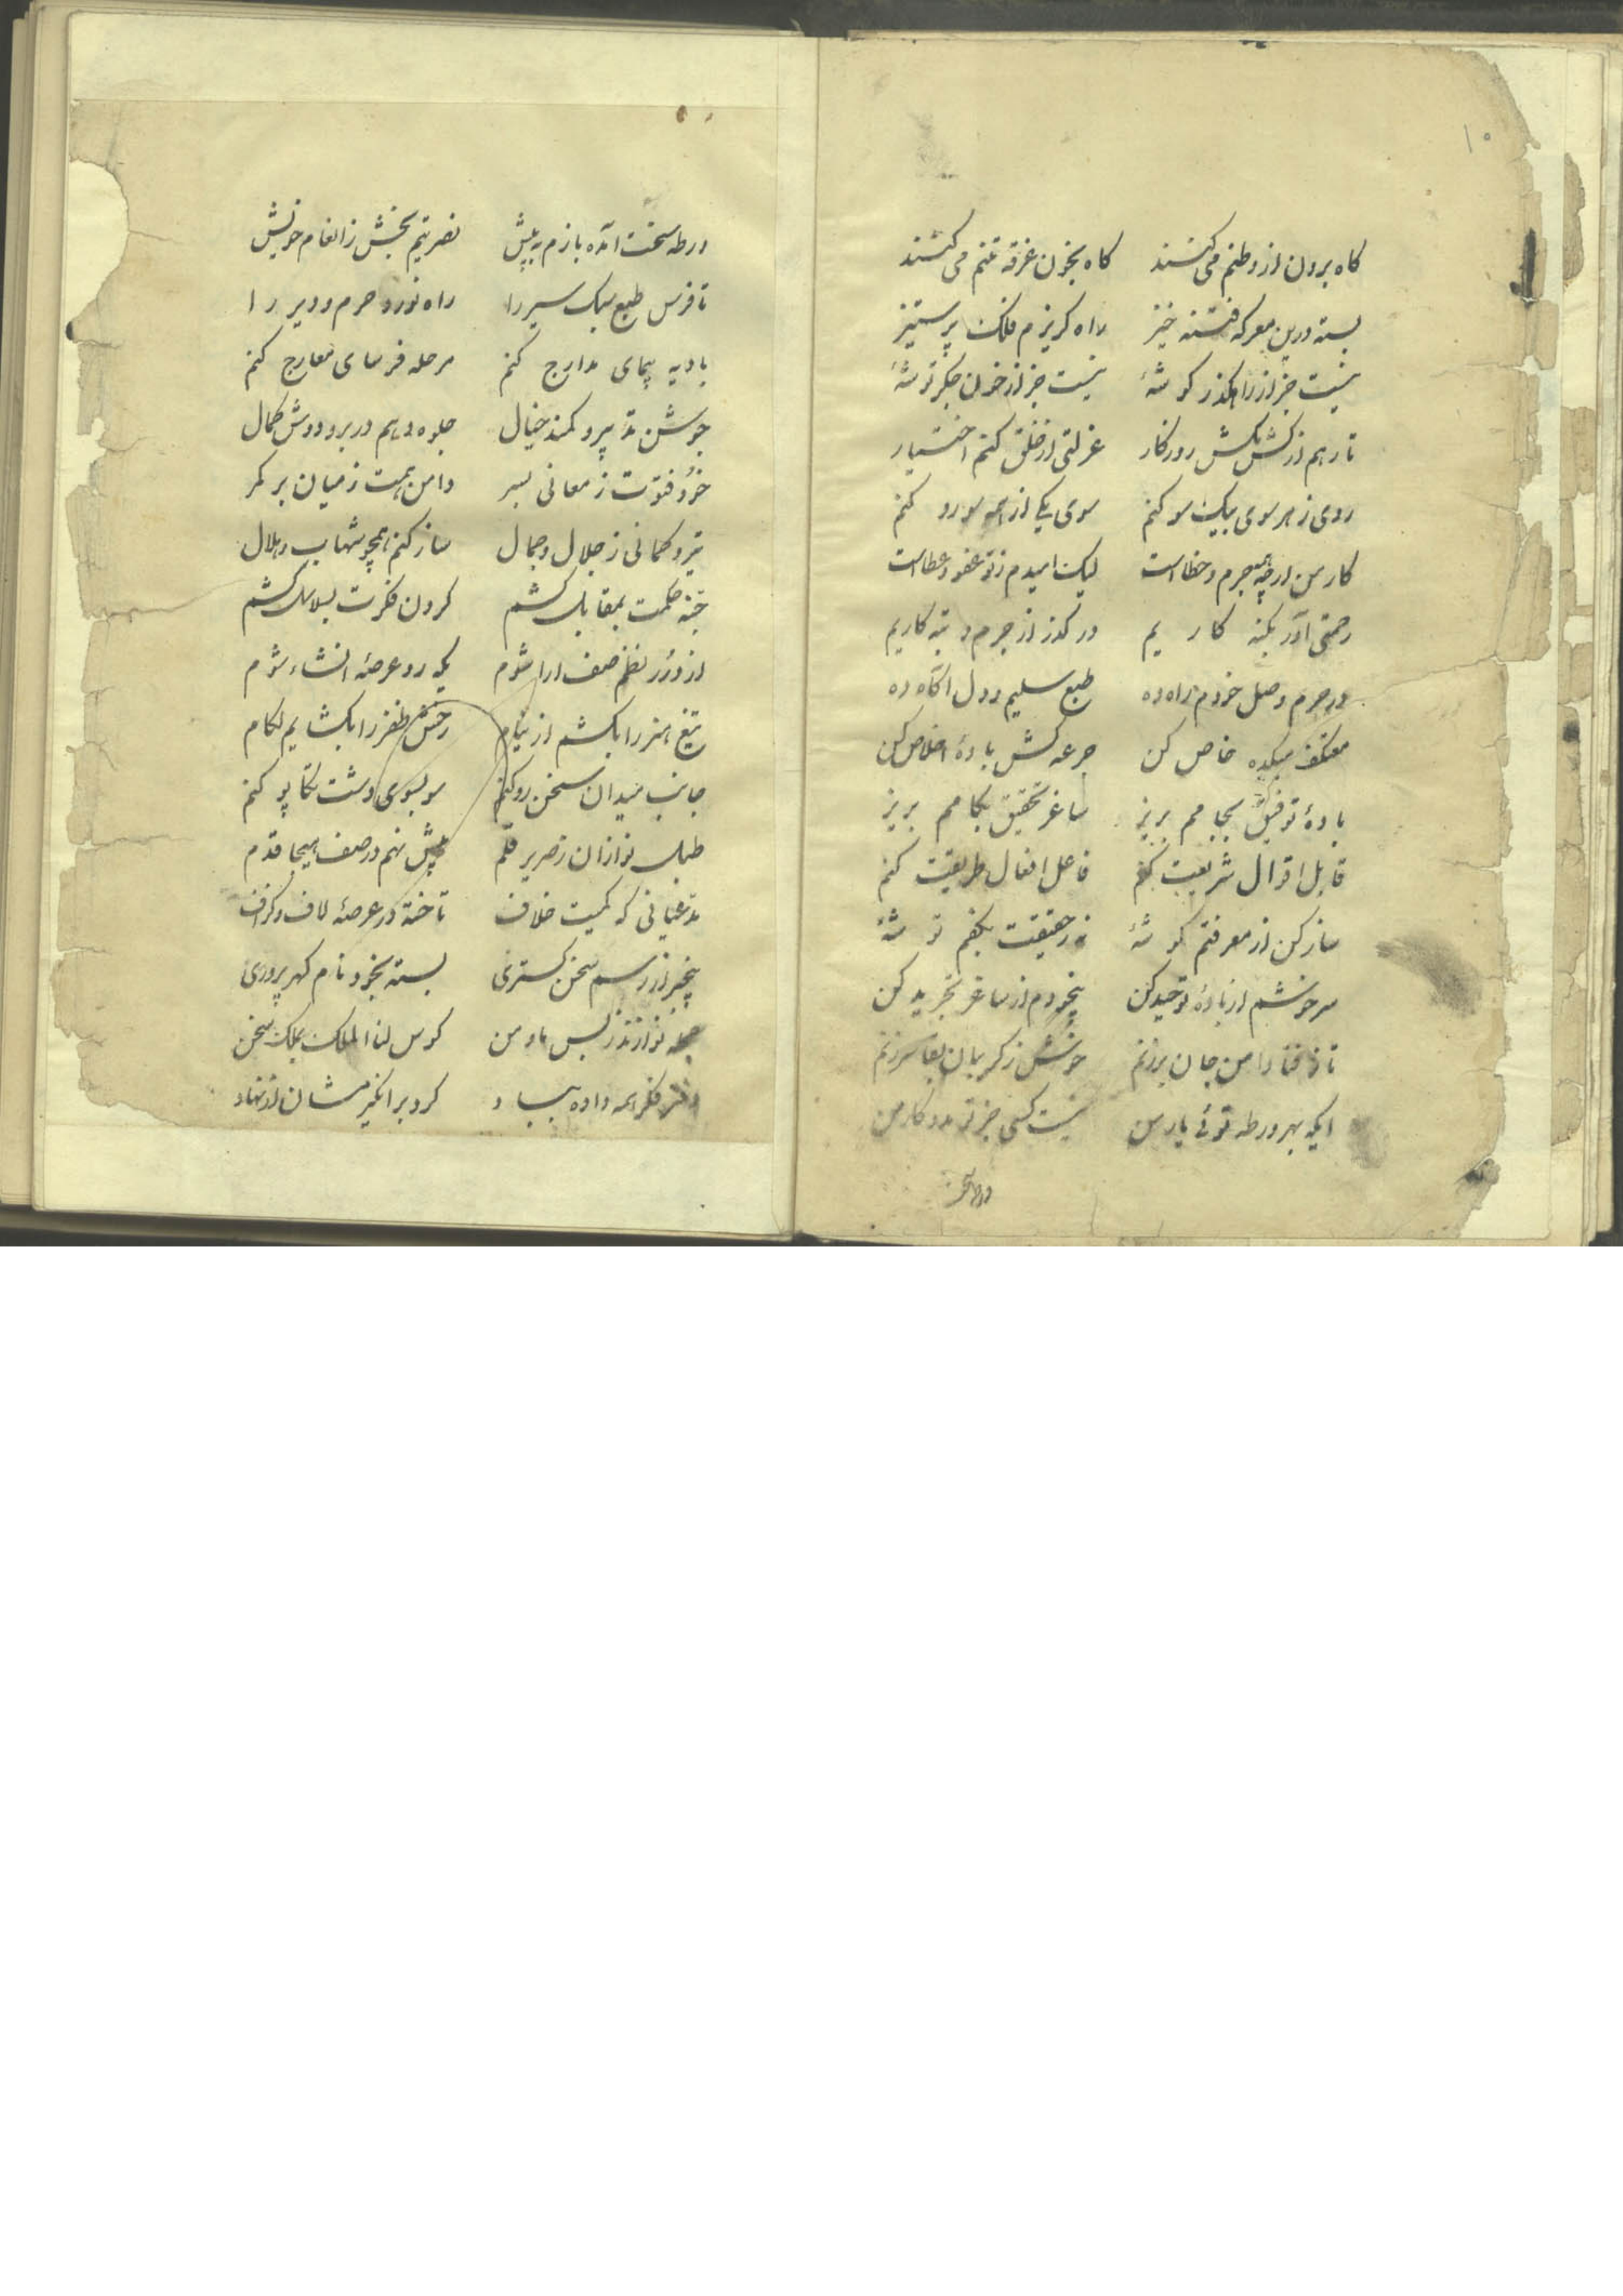 ۱۰
کاه برون از وطنم می کشند کاه بخون غرقه تنم می کشند
بسته درین معرکه فتنه خیز راه کریزم فلک پر ستیز
نیست جز از راهکذر کوشهٔ نیست جز از خون جکر توشهٔ
تا رهم از کشمکش روزکار عزلتی از خلق کنم اختیار
روی ز هر سوی بیک سو کنم سوی یکی از همه سو رو کنم
کار من ارچه همه جرم و خطا است لیک امیدم ز تو عفو و عطا است
رحمتی آور بکنه کاریم در کذر از جرم و تبه کاریم
در حرم وصل خودم راه ده طبع سلیم و دل آکاه ده
معتکف میکده خاص کن جرعه کش بادهٔ اخلاص کن
بادهٔ توفیق بجامم بریز ساغر تحقیق بکامم بریز
قابل اقوال شریعت کنم فاعل افعال طریقت کنم
ساز کن از معرفتم کوشهٔ نه ز حقیقت بکفم توشهٔ
سرخوشم از بادهٔ توحید کن بیخودم از ساغر تجرید کن
تا ز فنا دامن جان بر زنم خوش ز کریبان بقا سر زنم
ایکه بهر ورطه توئی یار من نیست کسی جز تو مددکار من
ورطه سخت
ورطه سخت آمده بازم به پیش نصرتیم بخش ز انعام خویش
تا فرس طبع سبک سیر را راه نورد حرم و دیر را
بادیه پیمای مدارج کنم مرحله فرسای معارج کنم
جوشن تدبیر و کمند خیال جلوه دهم در بر و دوش کمال
خود فتوت ز معانی بسر دامن همت ز میان بر کمر
تیر و کمانی ز جلال و جمال ساز کنم همچو شهاب و هلال
جنه حکمت بمقابل کشم کردن فکرت بسلاسل کشم
از در نظم صف ارا شوم یکه رو عرصهٔ انشاء شوم
تیغ هنر را بکشم از نیام رخش ظفر را بکشایم لکام
جانب میدان سخن رو کنم سو بسوی دشت تکاپو کنم
طبلک نوازان ز صریر قلم پیش نهم در صف هیجا قدم
مدعیانی که کمیت خلاف تاخته در عرصهٔ لاف و کزاف
بیخبر از رسم سخن کستری بسته بخود نام کهر پروری
جمله نوازند ز بس ما و من کوس لنا الملک بملک سخن
دفتر فکر همه داده بباد کرد بر انکیزمشان از نهاد